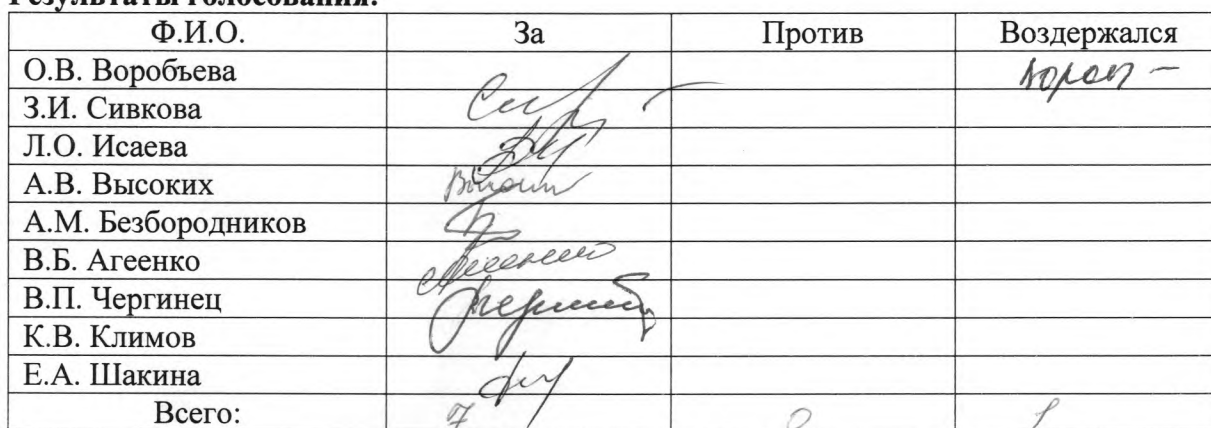 Результаты голосования:
Ф.И.О. За Против Воздержался
О.В. Воробъева
З.И. Сивкова
Л.О. Исаева
А.В. Высоких
А.М. Безбородников
В.Б. Агеенко
В.П. Чергинец
К.В. Климов
Е.А. Шакина
Всего: 7 0 1